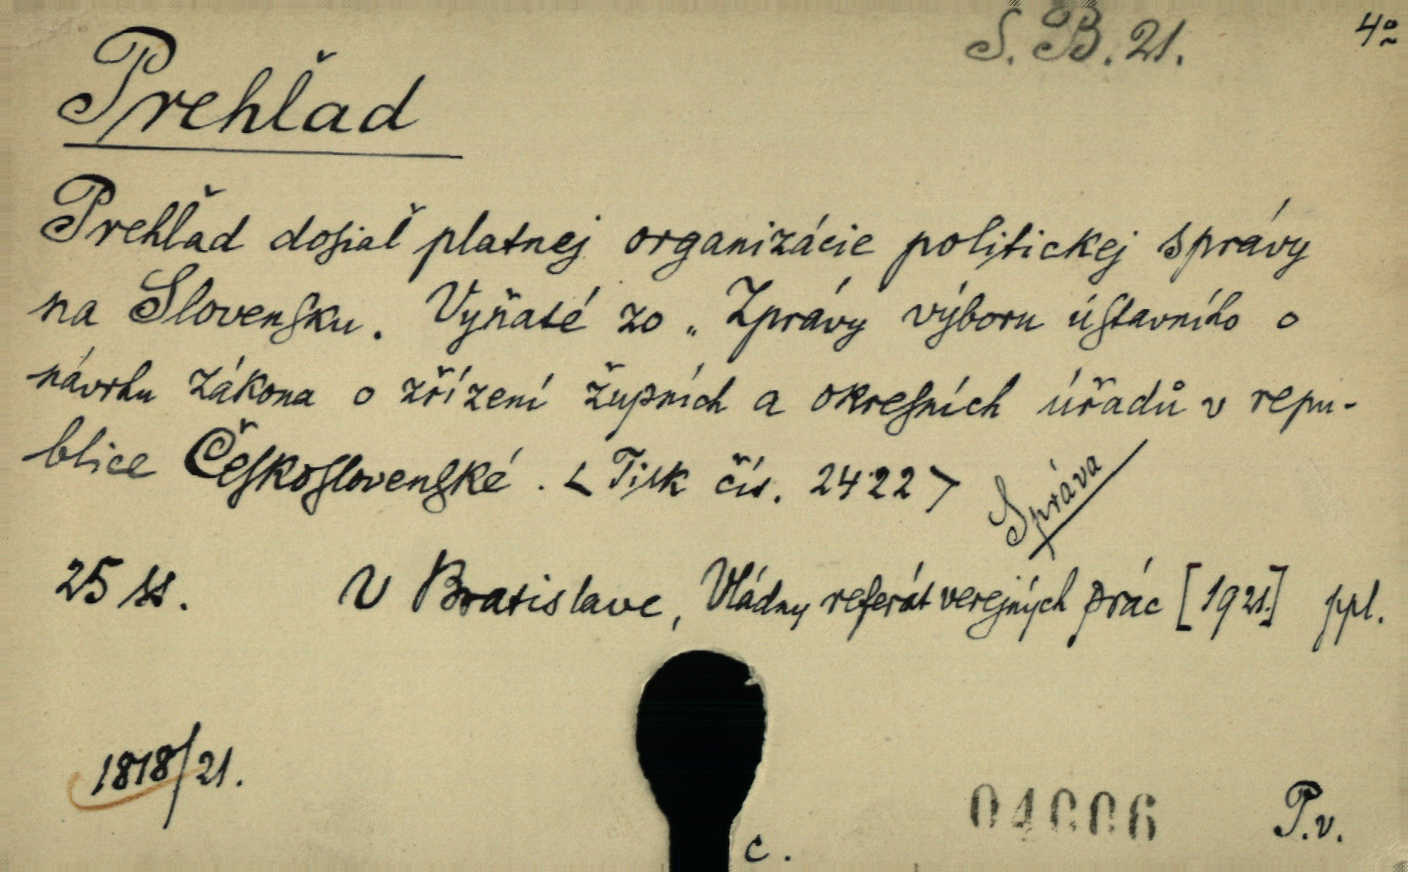 S. B. 21. 4º
Prehľad
Prehľad dosiaľ platnej organizácie politickej správy
na Slovensku. Vyňaté zo „Zprávy výboru ústavního o
návrhu zákona o zřízení župních a okresních úřadů v repu-
blice Československé. < Tisk čís. 2422 >
Správa
25 ss. V Bratislave, Vládny referát verejných prác [1921.] ppl.
1818/21.
04006 P.v.
c.